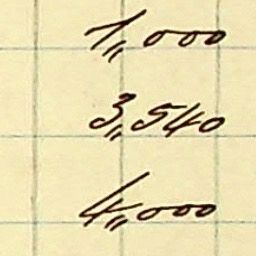 1,,000
3,,540
4,,000